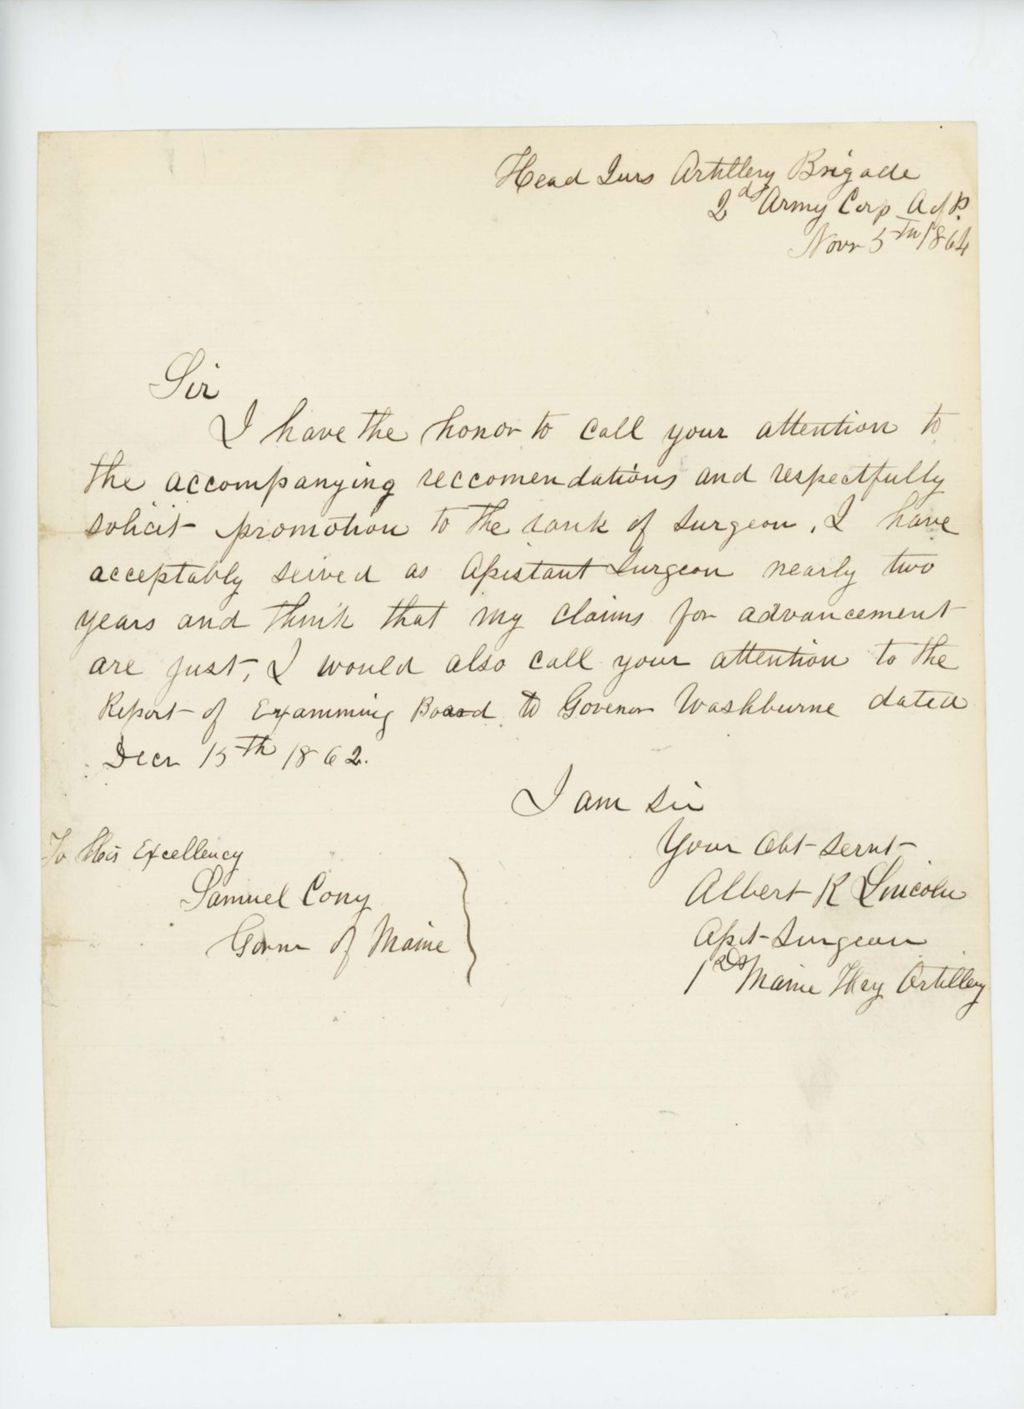 Head Qurs Artillery Brigade
2d Army Corp A of P.
Novr 5th 1864
Sir
I have the honor to call your attention to
the accompanying reccomendations and respectfully
solicit promotion to the rank of Surgeon. I have
acceptably served as Assistant Surgeon nearly two
years and think that my claims for advancement
are just, I would also call your attention to the
Report of Examining Board to Govenor Washburne dated
Decr 15th 1862.
I am Sir
Your Obt Servt
Albert R Lincoln
Asst Surgeon
1st Maine Hey Artillery
To His Excellency
Samuel Cony
Govnr of Maine